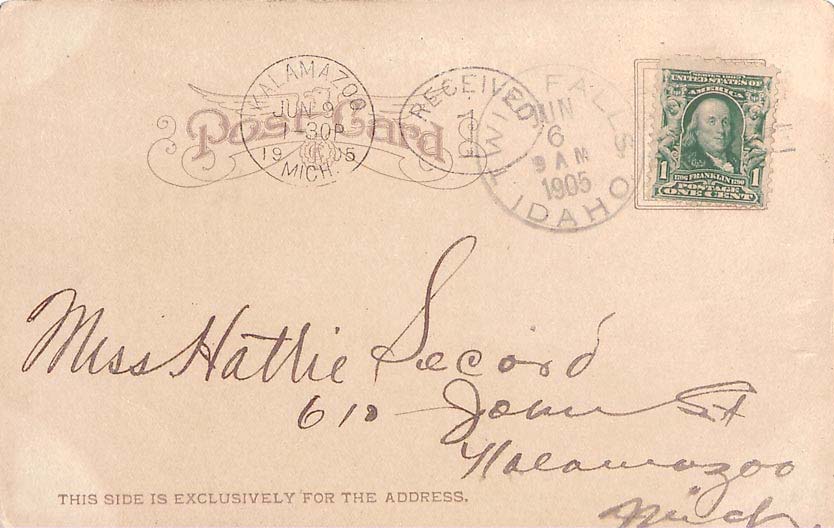 KALAMAZOO
JUN 9
1-30P
1905
MICH.
Post Card
RECEIVED
1
TWIN FALLS
JUN
6
9 AM
1905
IDAHO
SERIES 1902
UNITED STATES OF
AMERICA
1 1706 FRANKLIN 1790 1
POSTAGE
ONE CENT
Miss Hattie Secord
610 John St
Kalamazoo
Mich.
THIS SIDE IS EXCLUSIVELY FOR THE ADDRESS.